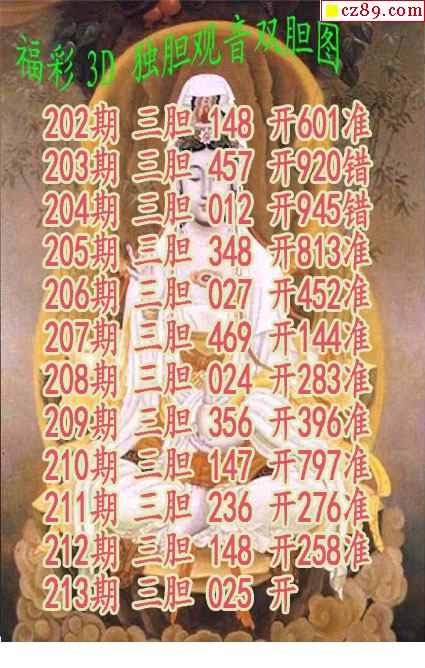 cz89.com
福彩 3D 独胆观音双胆图
202期 三胆 148 开601准
203期 三胆 457 开920错
204期 三胆 012 开945错
205期 三胆 348 开813准
206期 三胆 027 开452准
207期 三胆 469 开144准
208期 三胆 024 开283准
209期 三胆 356 开396准
210期 三胆 147 开797准
211期 三胆 236 开276准
212期 三胆 148 开258准
213期 三胆 025 开